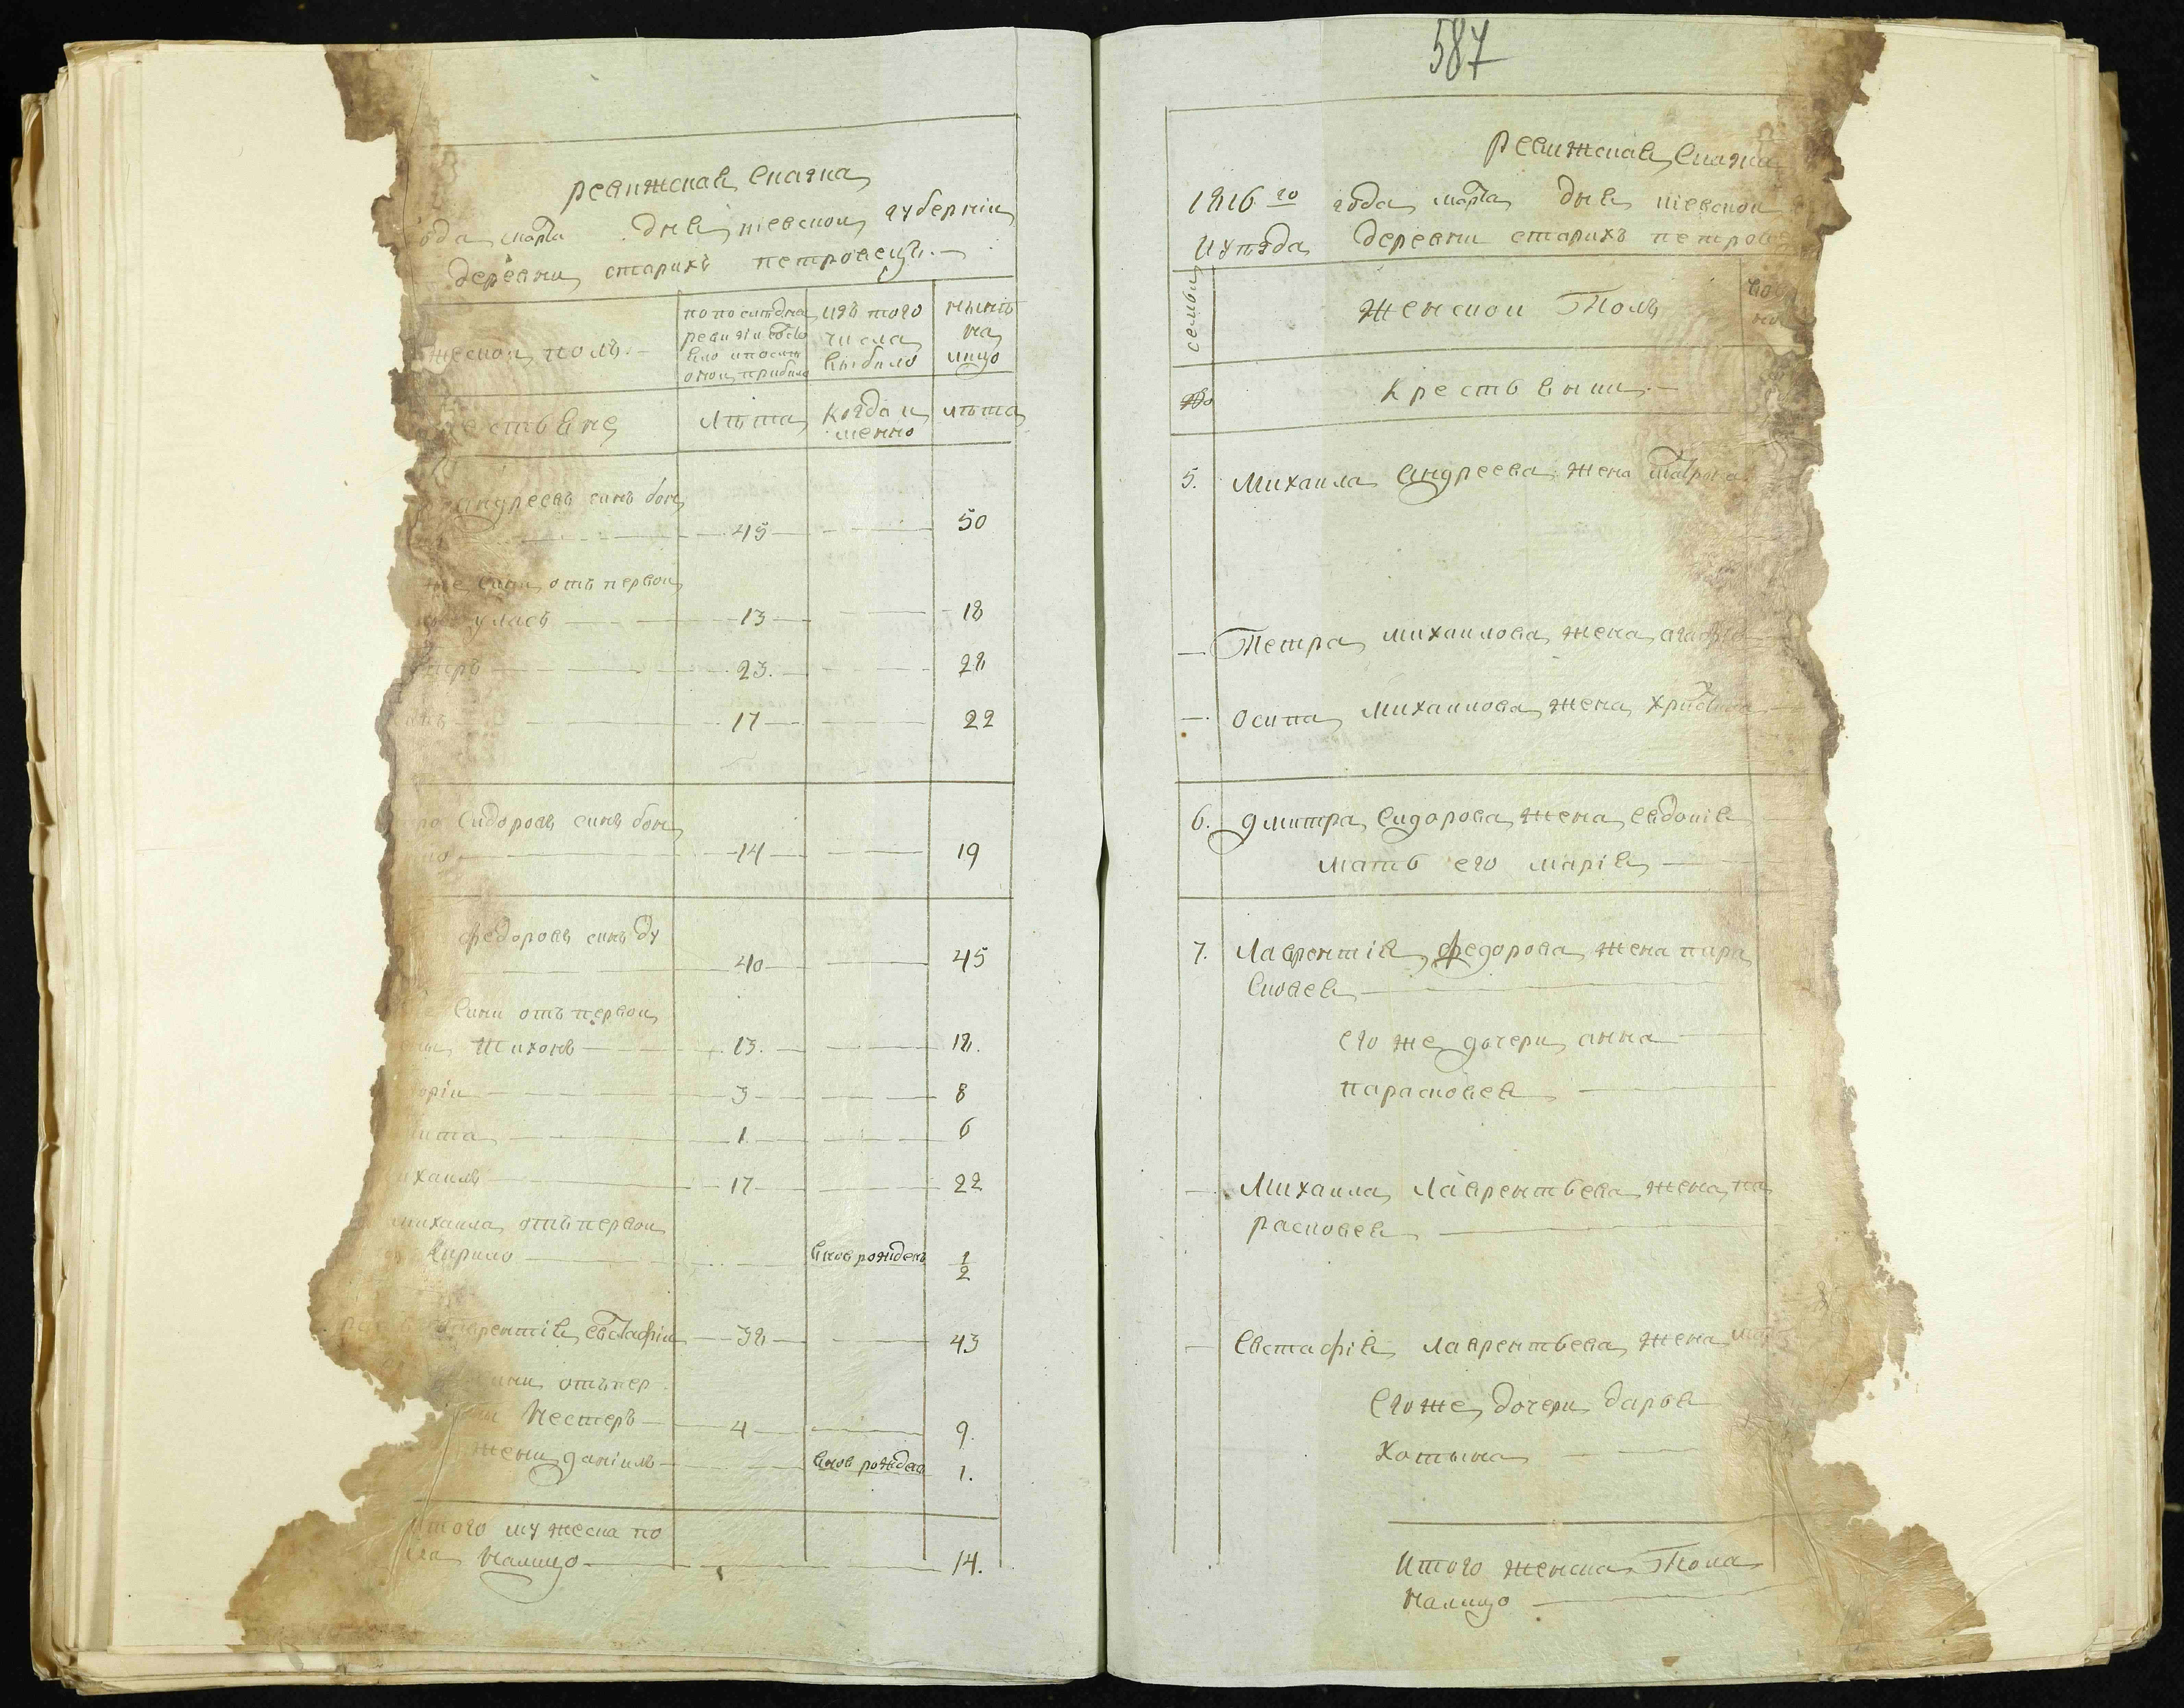 ревижская сказка
года марта дня киевской губернии
деревни старихъ петровецъ.
жеской полъ.
по последней
ревизіи состо
яло и после
оной прибыло
изъ того
числа
выбыло
нынѣ
на
лицо
стьяне
лѣта
когда и
менно
лѣта
андреевъ синъ бон
45
50
же сини отъ первой
уласъ
13
18
тръ
23.
28
17
22
Сидоровъ синъ бон
14
19
федоровъ синъ ду
40
45
сини отъ первой
Тихонъ
13.
18.
горіи
3
8
кита
1
6
ихаилъ
17
22
михаила отъ первой
Кирило
вновь рожденъ
1/2
лаврентія евстафіи
38
43
сини отъ пер
Нестеръ
4
9.
жени даніилъ
вновь рожденъ
1.
Итого мужеска по
ла налицо
14.
587
Ревижская Сказка
1816 го года марта дня киевской
и уезда деревни старихъ петрове
семьи
Женской Полъ
№
Крестьяни
5. Михаила андреева жена
Петра михайлова жена агафія
осипа михайлова жена христина
6. дмитра сидорова жена евдокія
мать его марія
7. Лаврентія федорова жена пара
сковея
его же дочери анна
парасковея
Михаила Лаврентьева жена па
расковея
Евстафія лаврентьева жена
Его же дочери дарья
хотына
Итого женска Пола
налицо